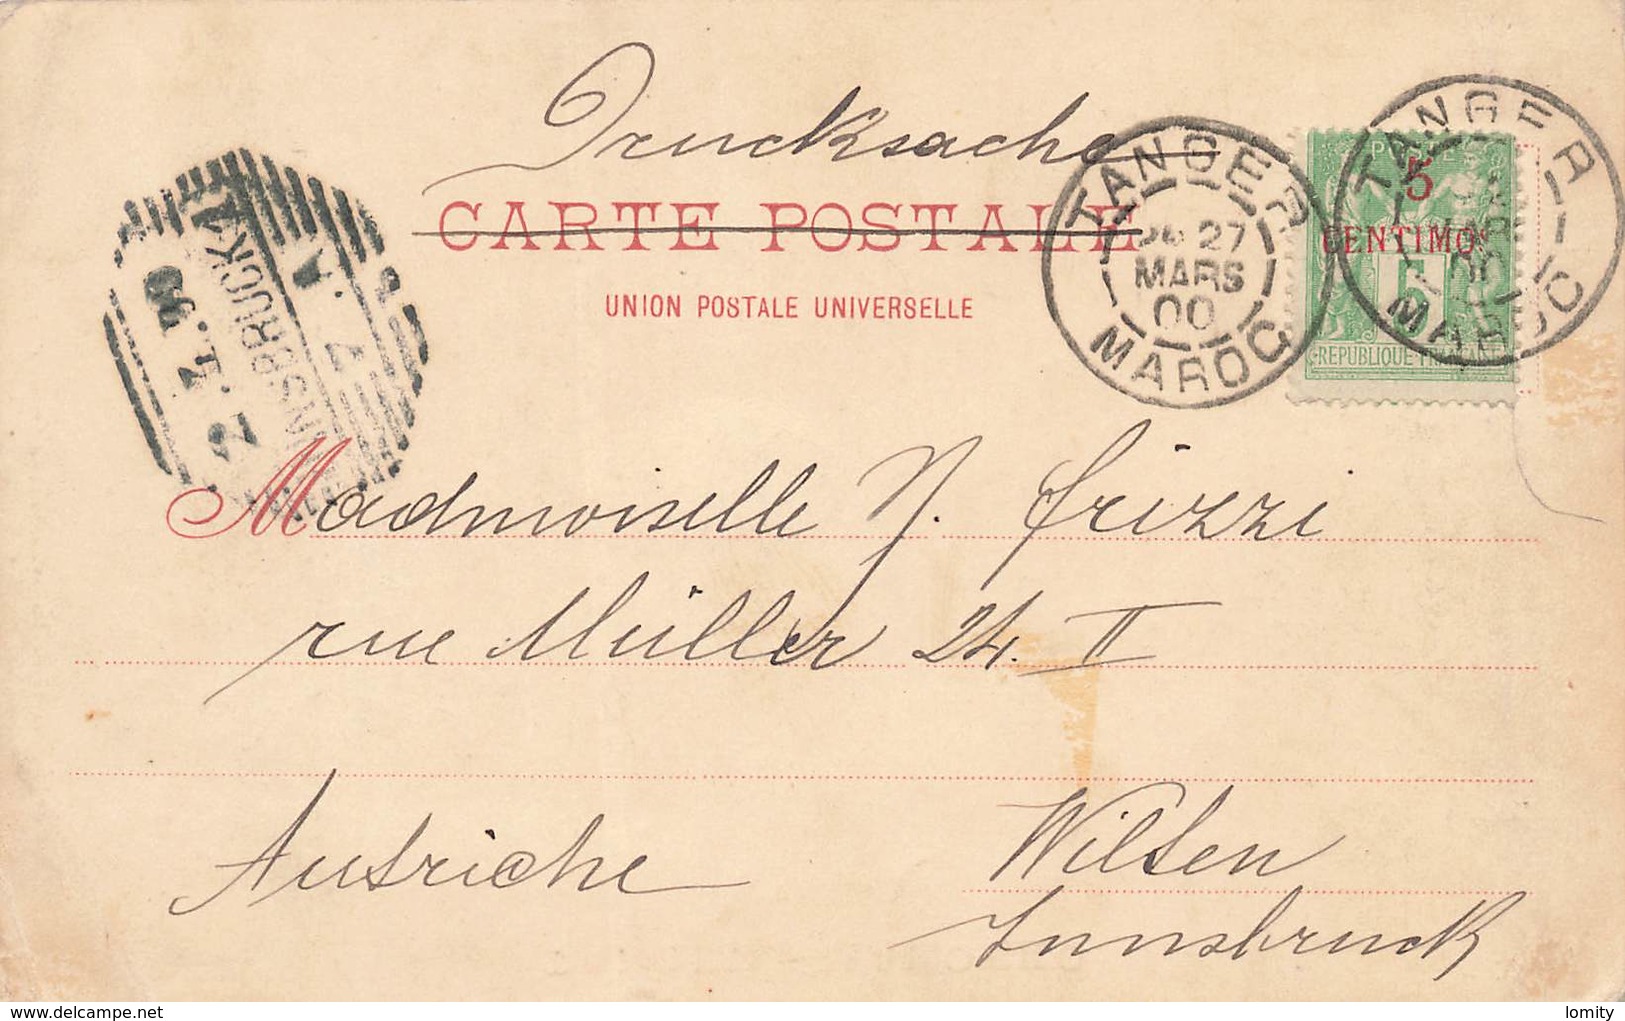 Drucksache
CARTE POSTALE
UNION POSTALE UNIVERSELLE
TANGER
27
MARS
00
MAROC
TANGER
MAROC
POSTE
5
CENTIMOS
5
REPUBLIQUE FRANCAISE
INNSBRUCK 1
Mademoiselle N. Frizzi
rue Müller 24. II
Autriche
Wilten
Innsbruck
www.delcampe.net
lomity